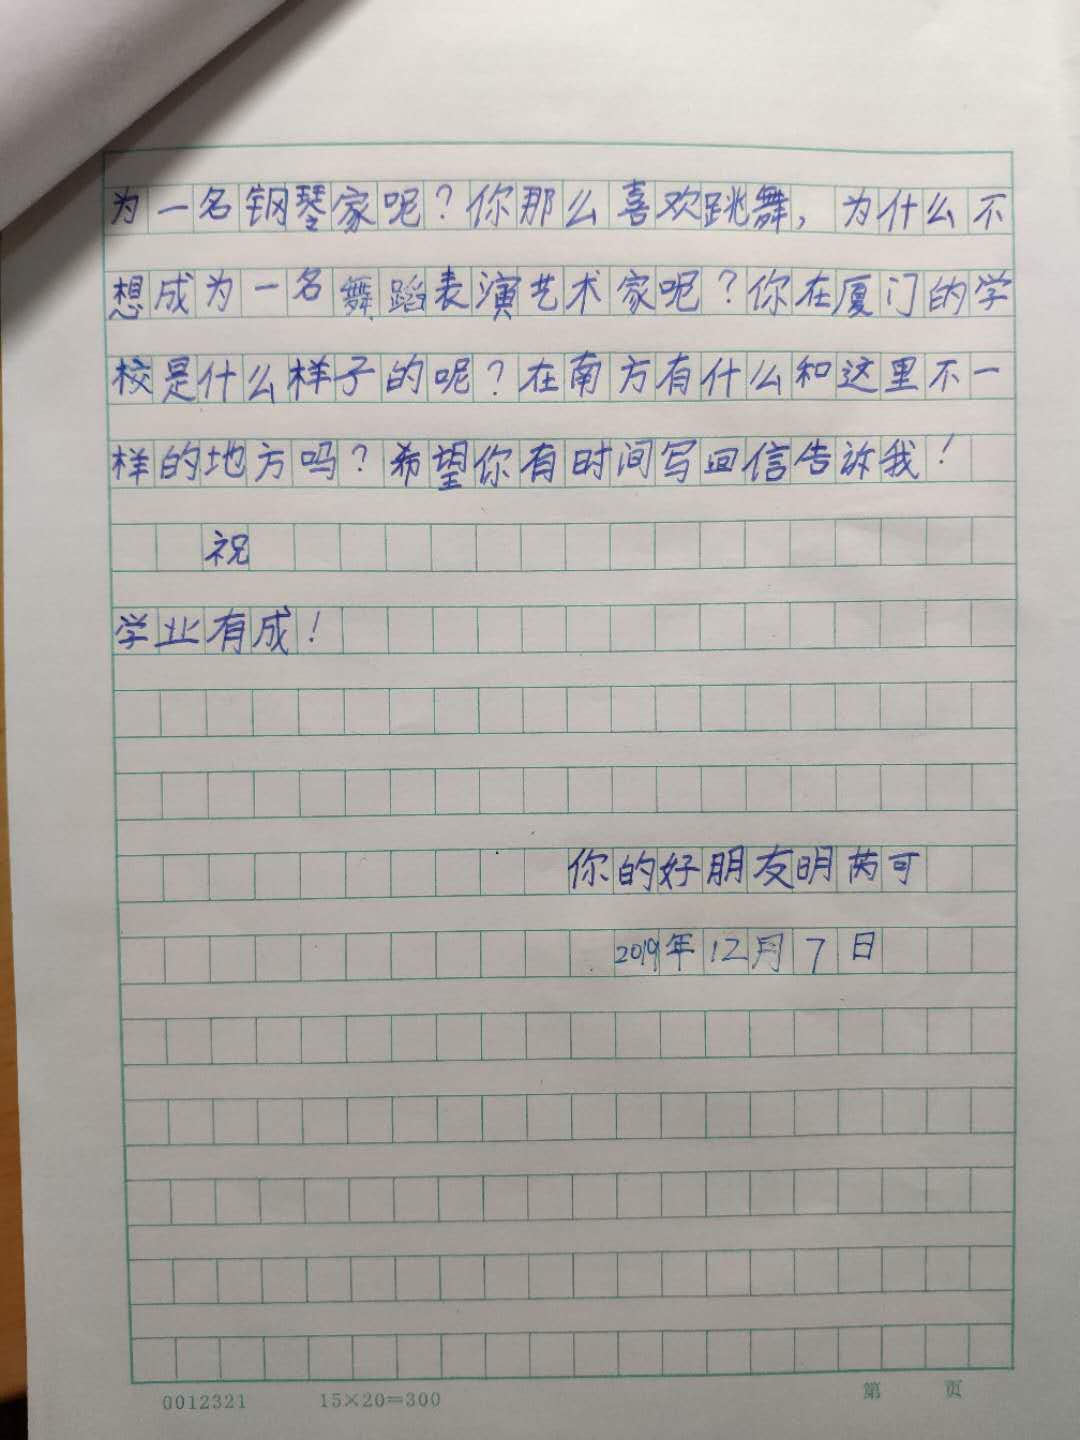 为一名钢琴家呢？你那么喜欢跳舞，为什么不
想成为一名舞蹈表演艺术家呢？你在厦门的学
校是什么样子的呢？在南方有什么和这里不一
样的地方吗？希望你有时间写回信告诉我！
祝
学业有成！
你的好朋友明芮可
2019年12月7日
0012321 15×20=300 第 页